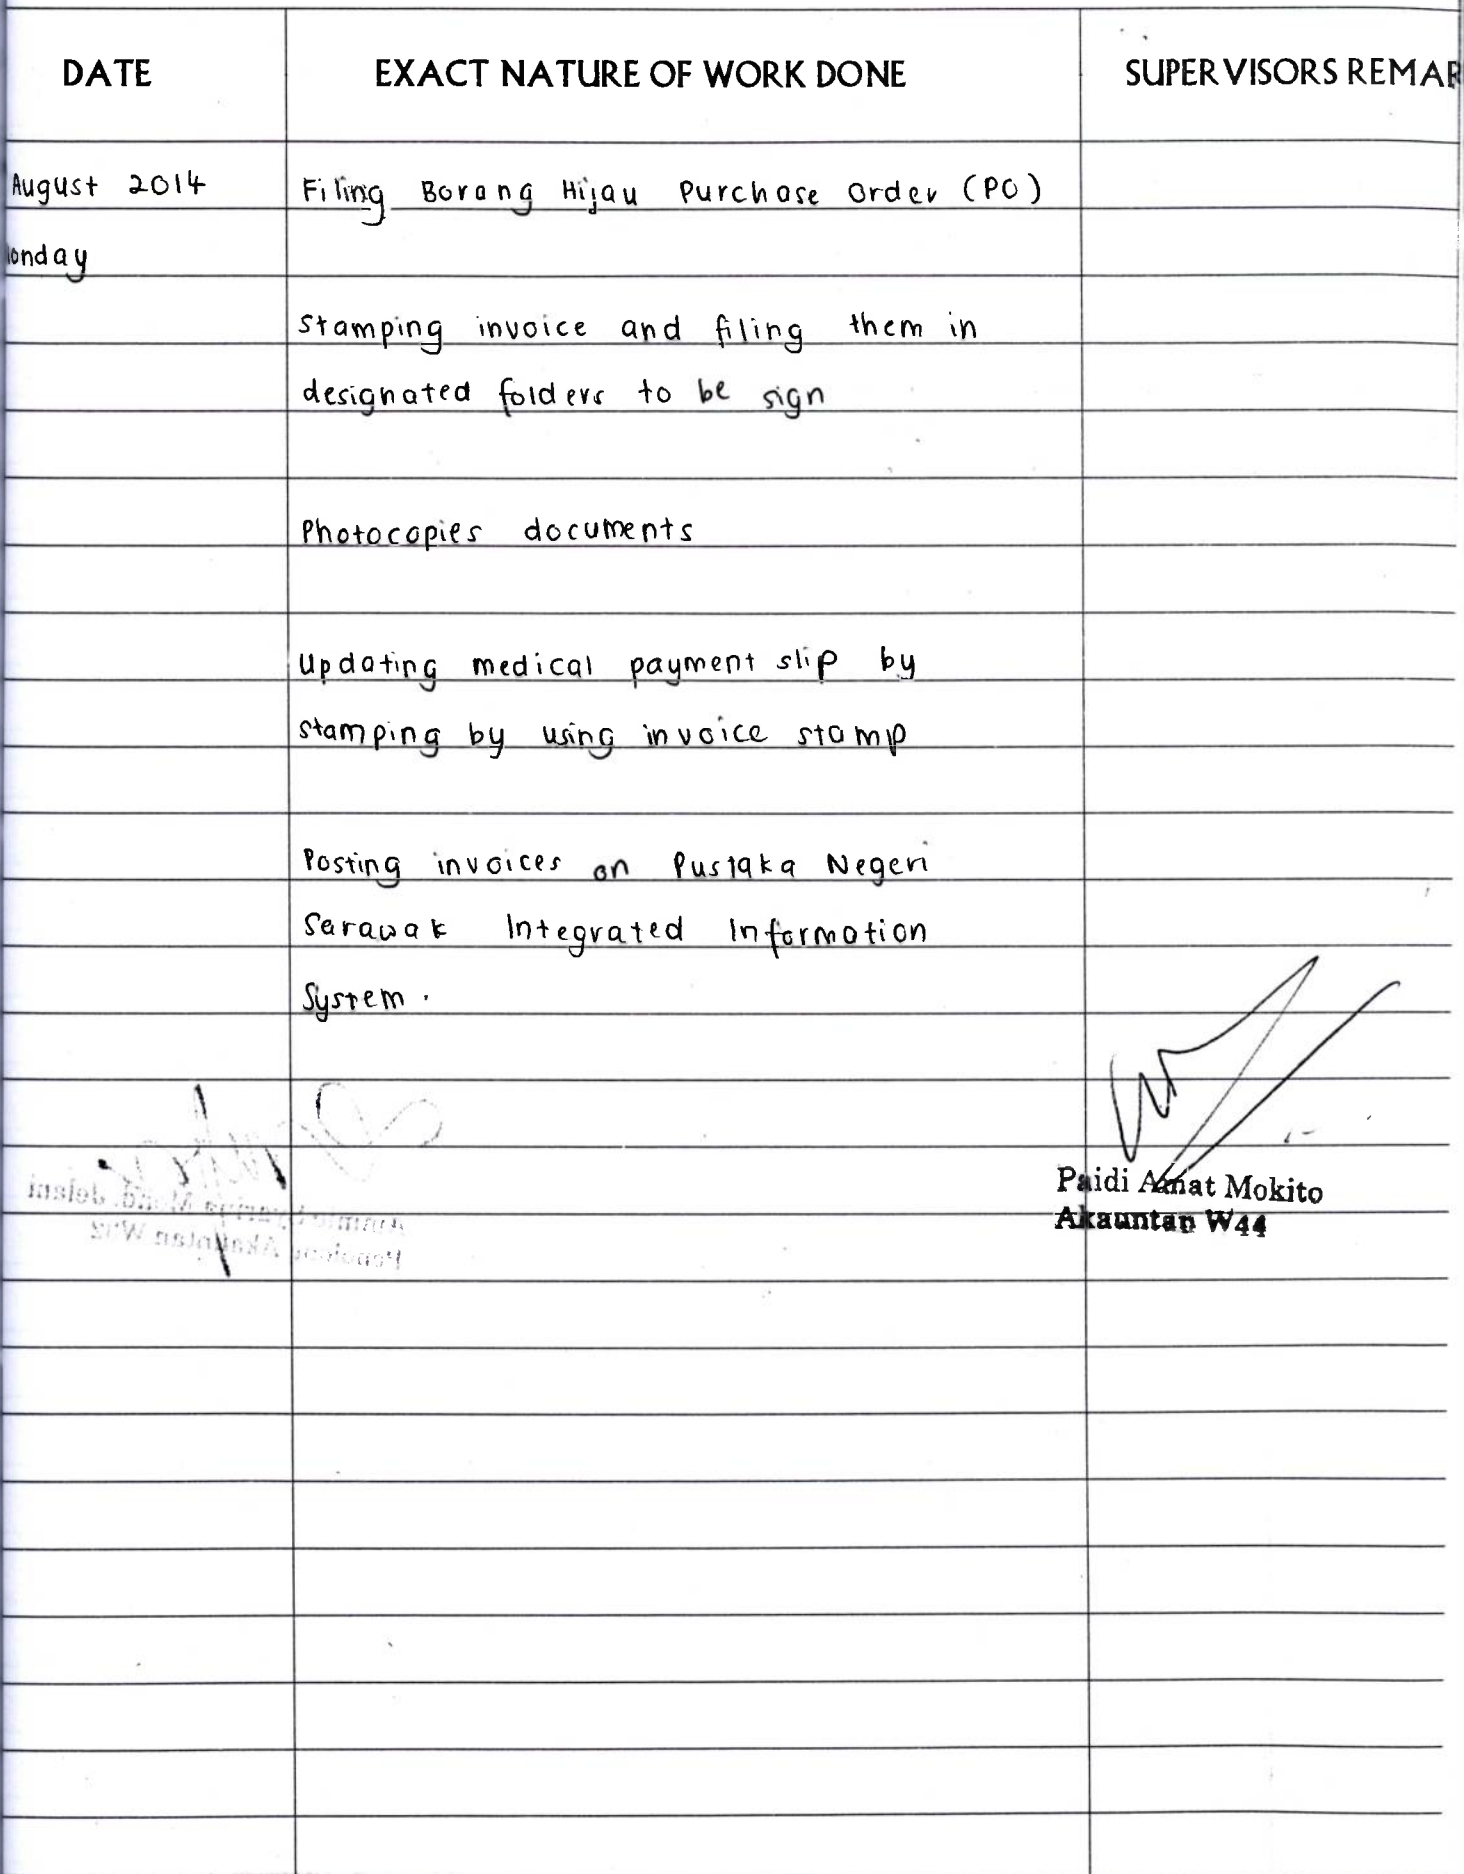 DATE EXACT NATURE OF WORK DONE SUPERVISORS REMAR
August 2014 Filing Borang Hijau Purchase Order (PO)
onday
Stamping invoice and filing them in
designated folders to be sign
Photocopies documents
Updating medical payment slip by
stamping by using invoice stamp
Posting invoices on Pustaka Negeri
Sarawak Integrated Information
System.
Paidi Amat Mokito
Akauntan W44